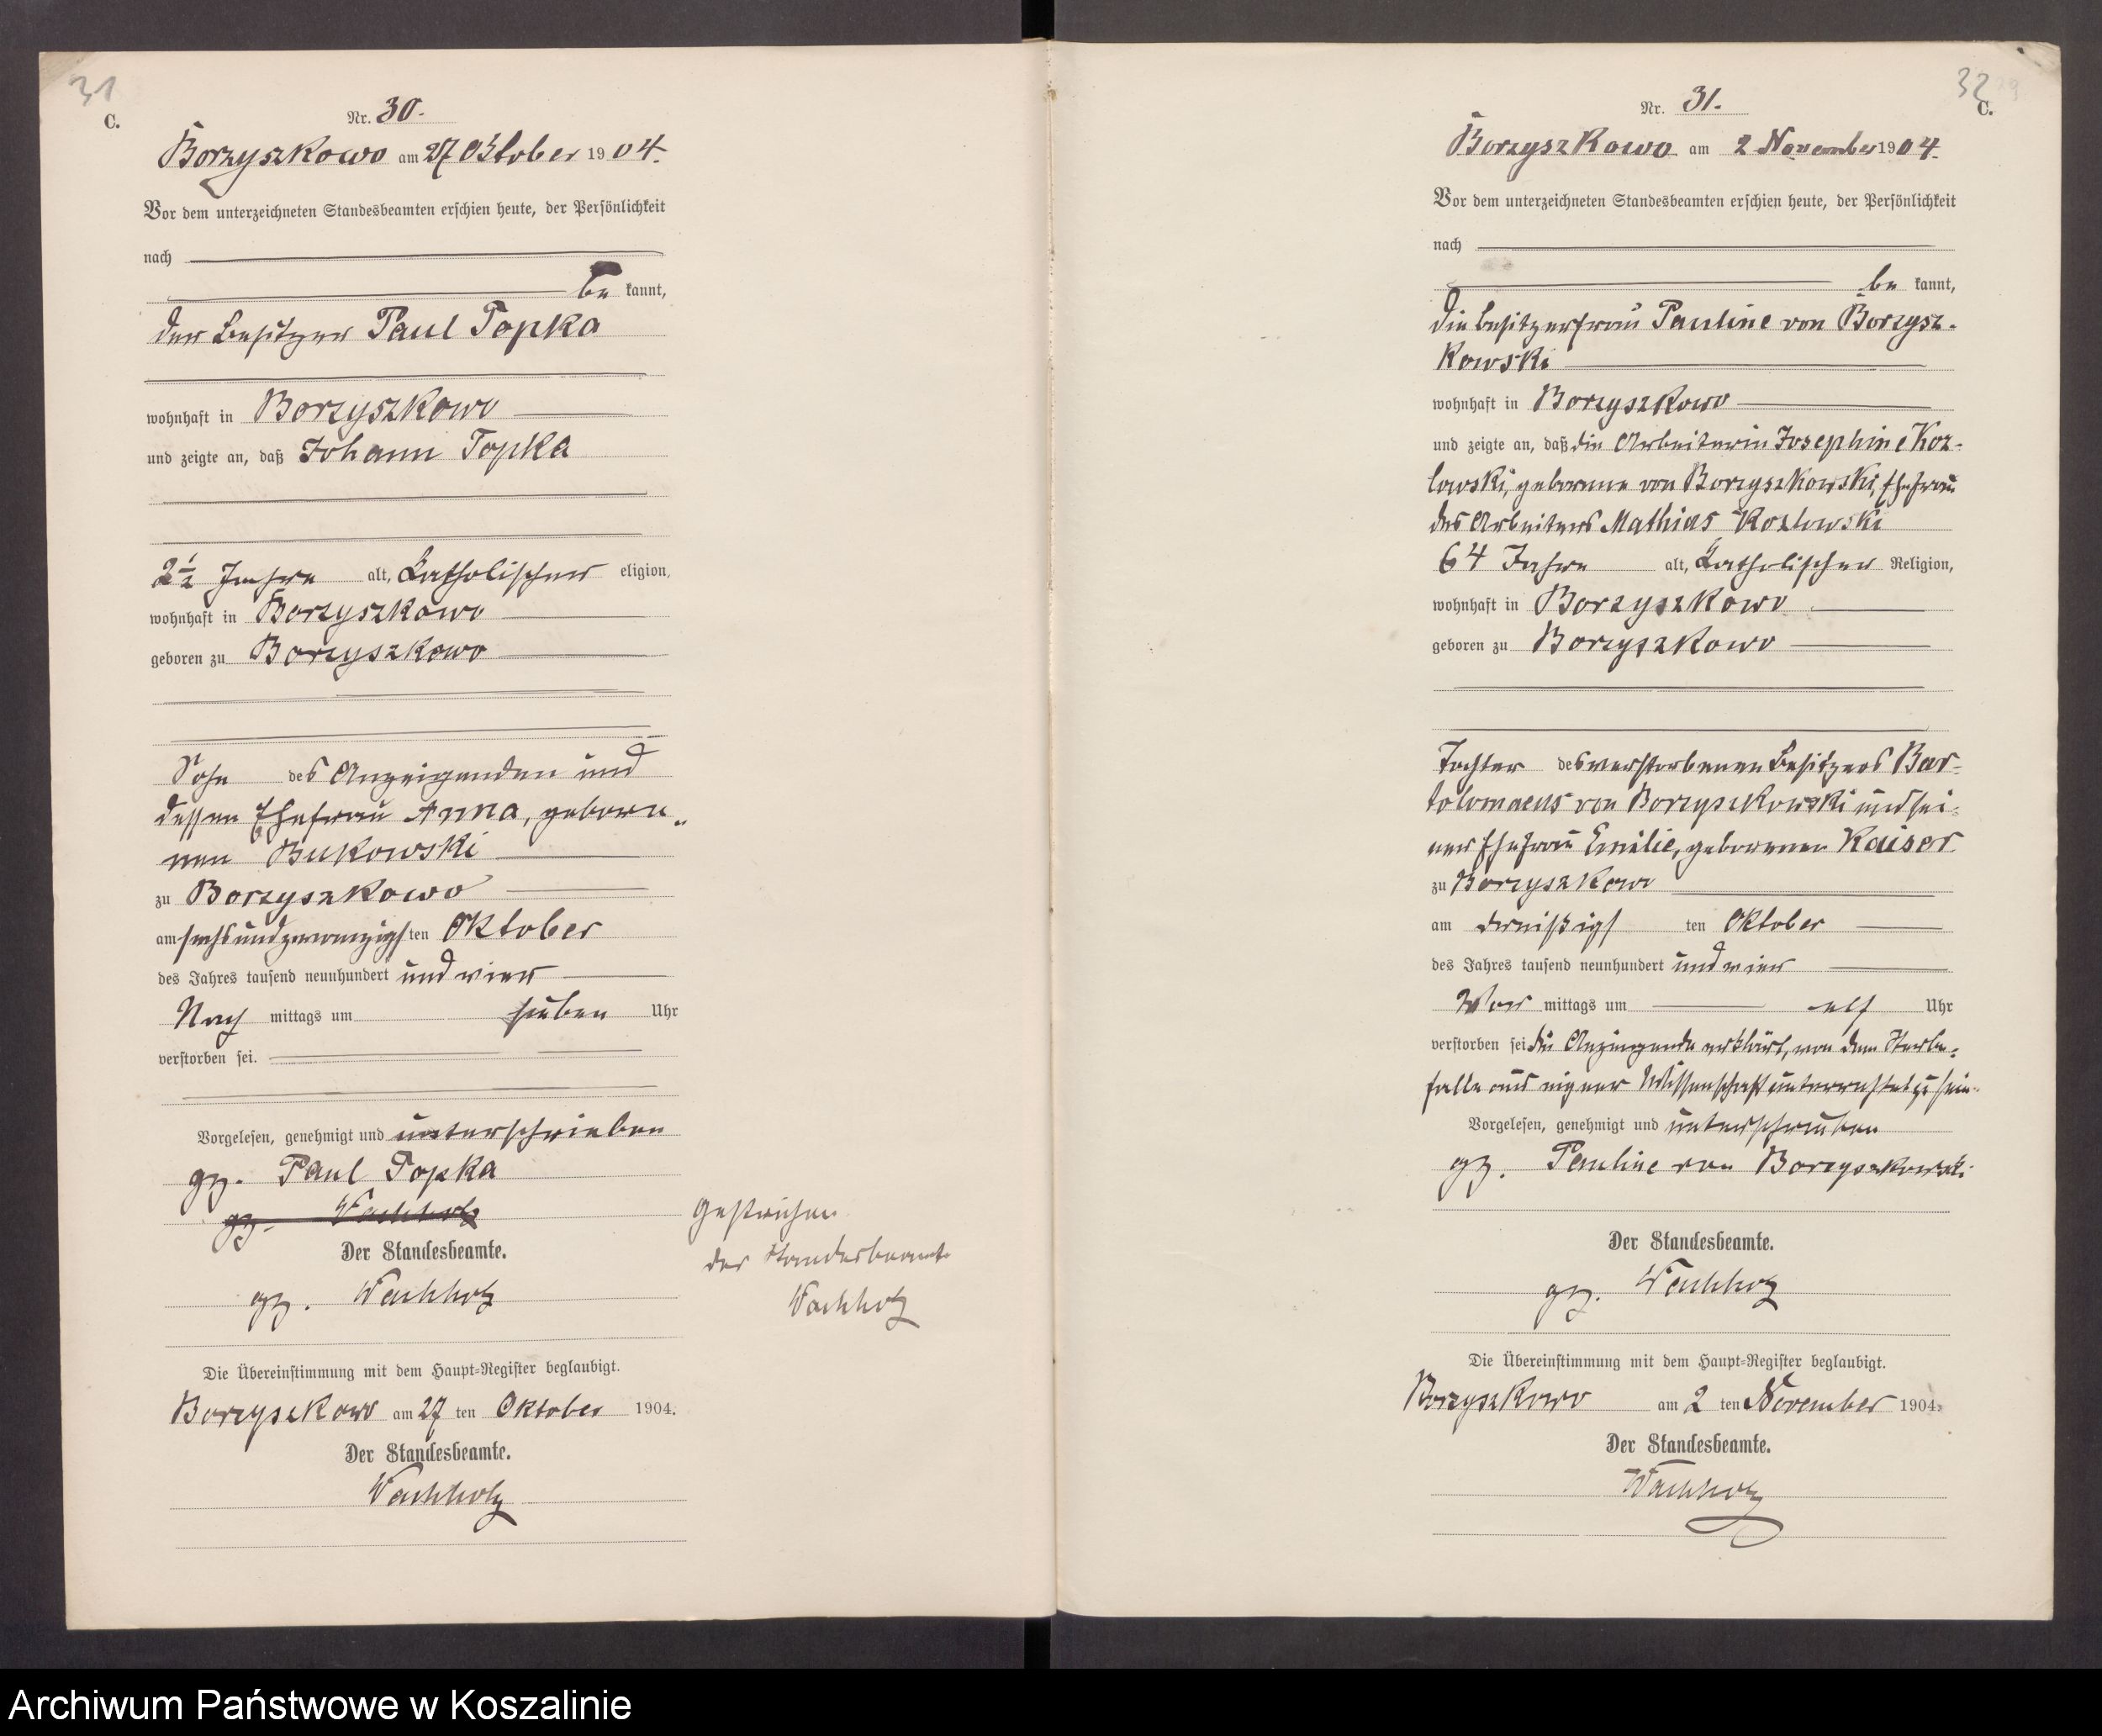 31
C.
Nr. 30.
Borzyszkowo am 27 Oktober 1904.
Vor dem unterzeichneten Standesbeamten erschien heute, der Persönlichkeit
nach
be kannt,
der Besitzer Paul Topka
wohnhaft in Borzyszkowo
und zeigte an, daß Johann Topka
2 1/2 Jahre alt, katholischer eligion,
wohnhaft in Borzyszkowo
geboren zu Borzyszkowo
Sohn des Anzeigenden und
dessen Ehefrau Anna, gebore„
nen Bukowski
zu Borzyszkowo
am sechsundzwanzigsten Oktober
des Jahres tausend neunhundert und vier
Nach mittags um sieben Uhr
verstorben sei.
Vorgelesen, genehmigt und unterschrieben
gz. Paul Topka
gz. Wachholz
Der Standesbeamte.
gz. Wachholz
Gestrichen
der Standesbeamte
Wachholz
Die Übereinstimmung mit dem Haupt-Register beglaubigt.
Borzyszkowo am 27 ten Oktober 1904.
Der Standesbeamte.
Wachholz
32
C.
Nr. 31.
Borzyszkowo am 2 November 1904.
Vor dem unterzeichneten Standesbeamten erschien heute, der Persönlichkeit
nach
be kannt,
die Besitzerfrau Pauline von Borzysz-
kowski
wohnhaft in Borzyszkowo
und zeigte an, daß die Arbeiterin Josephine Koz-
lowski, geborene von Borzyszkowski, Ehefrau
des Arbeiters Mathias Kozlowski
64 Jahre alt, katholischer Religion,
wohnhaft in Borzyszkowo
geboren zu Borzyszkowo
Tochter des verstorbenen Besitzers Bar-
tolomaeus von Borzyszkowski und sei-
ner Ehefrau Emilie, geborenen Kaiser
zu Borzyszkowo
am dreißigsten Oktober
des Jahres tausend neunhundert und vier
Vor mittags um elf Uhr
verstorben sei die Anzeigende erklärt, von dem Sterbe-
falle aus eigener Wissenschaft unterrichtet zu sein.
Vorgelesen, genehmigt und unterschrieben
gz. Pauline von Borzyszkowski
Der Standesbeamte.
gz. Wachholz
Die Übereinstimmung mit dem Haupt-Register beglaubigt.
Borzyszkowo am 2 ten November 1904.
Der Standesbeamte.
Wachholz
Archiwum Państwowe w Koszalinie